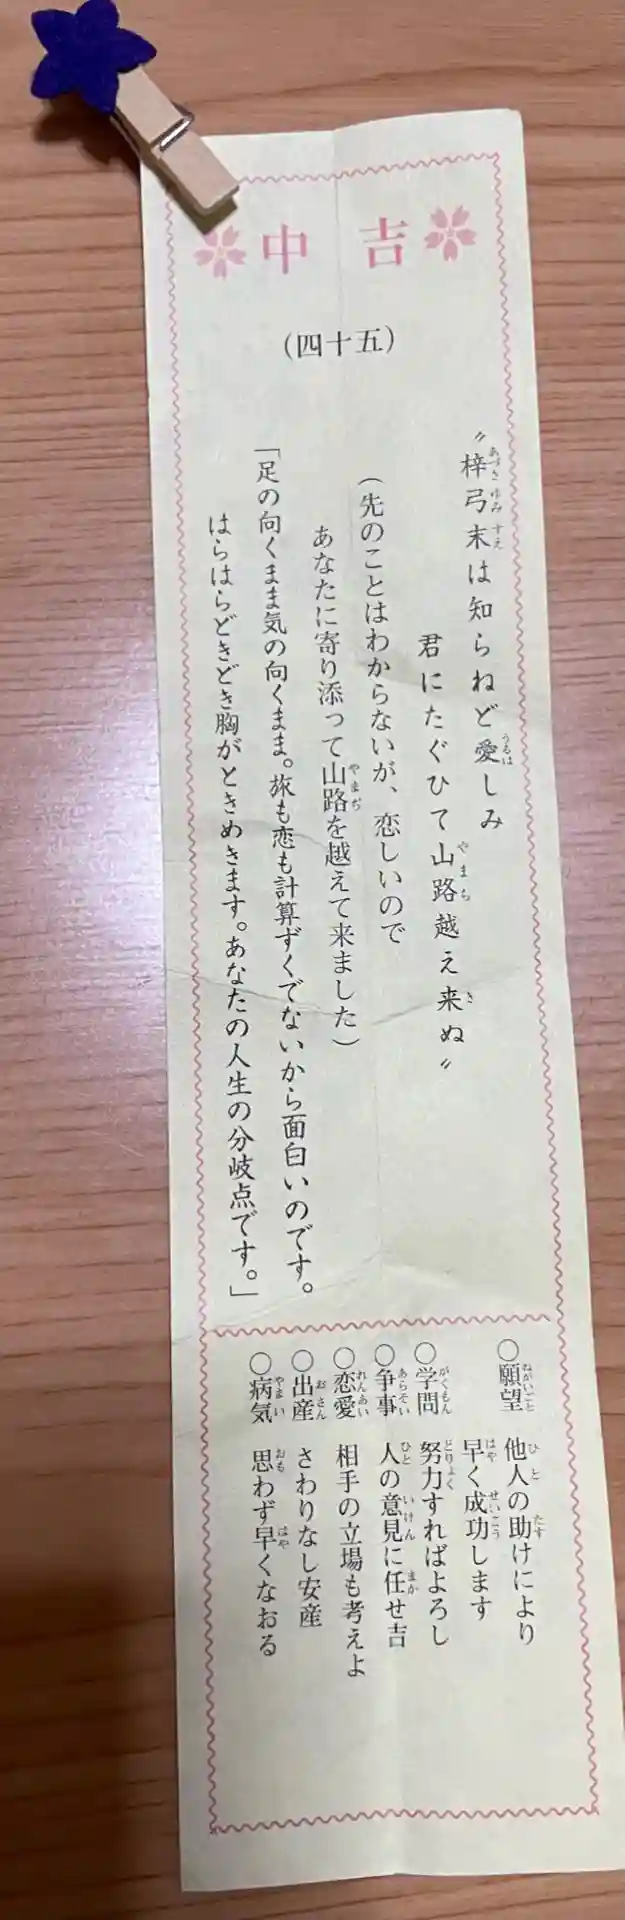 中吉
（四十五）
〝梓弓末は知らねど愛しみ
君にたぐひて山路越え来ぬ〟
（先のことはわからないが、恋しいので
あなたに寄り添って山路を越えて来ました）
「足の向くまま気の向くまま。旅も恋も計算ずくでないから面白いのです。
はらはらどきどき胸がときめきます。あなたの人生の分岐点です。」
○願望 他人の助けにより
早く成功します
○学問 努力すればよろし
○争事 人の意見に任せ吉
○恋愛 相手の立場も考えよ
○出産 さわりなし安産
○病気 思わず早くなおる